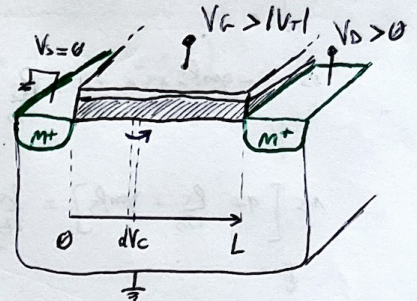 V_S=0
V_G>|V_T|
V_D>0
n+
n+
0
dV_C
L